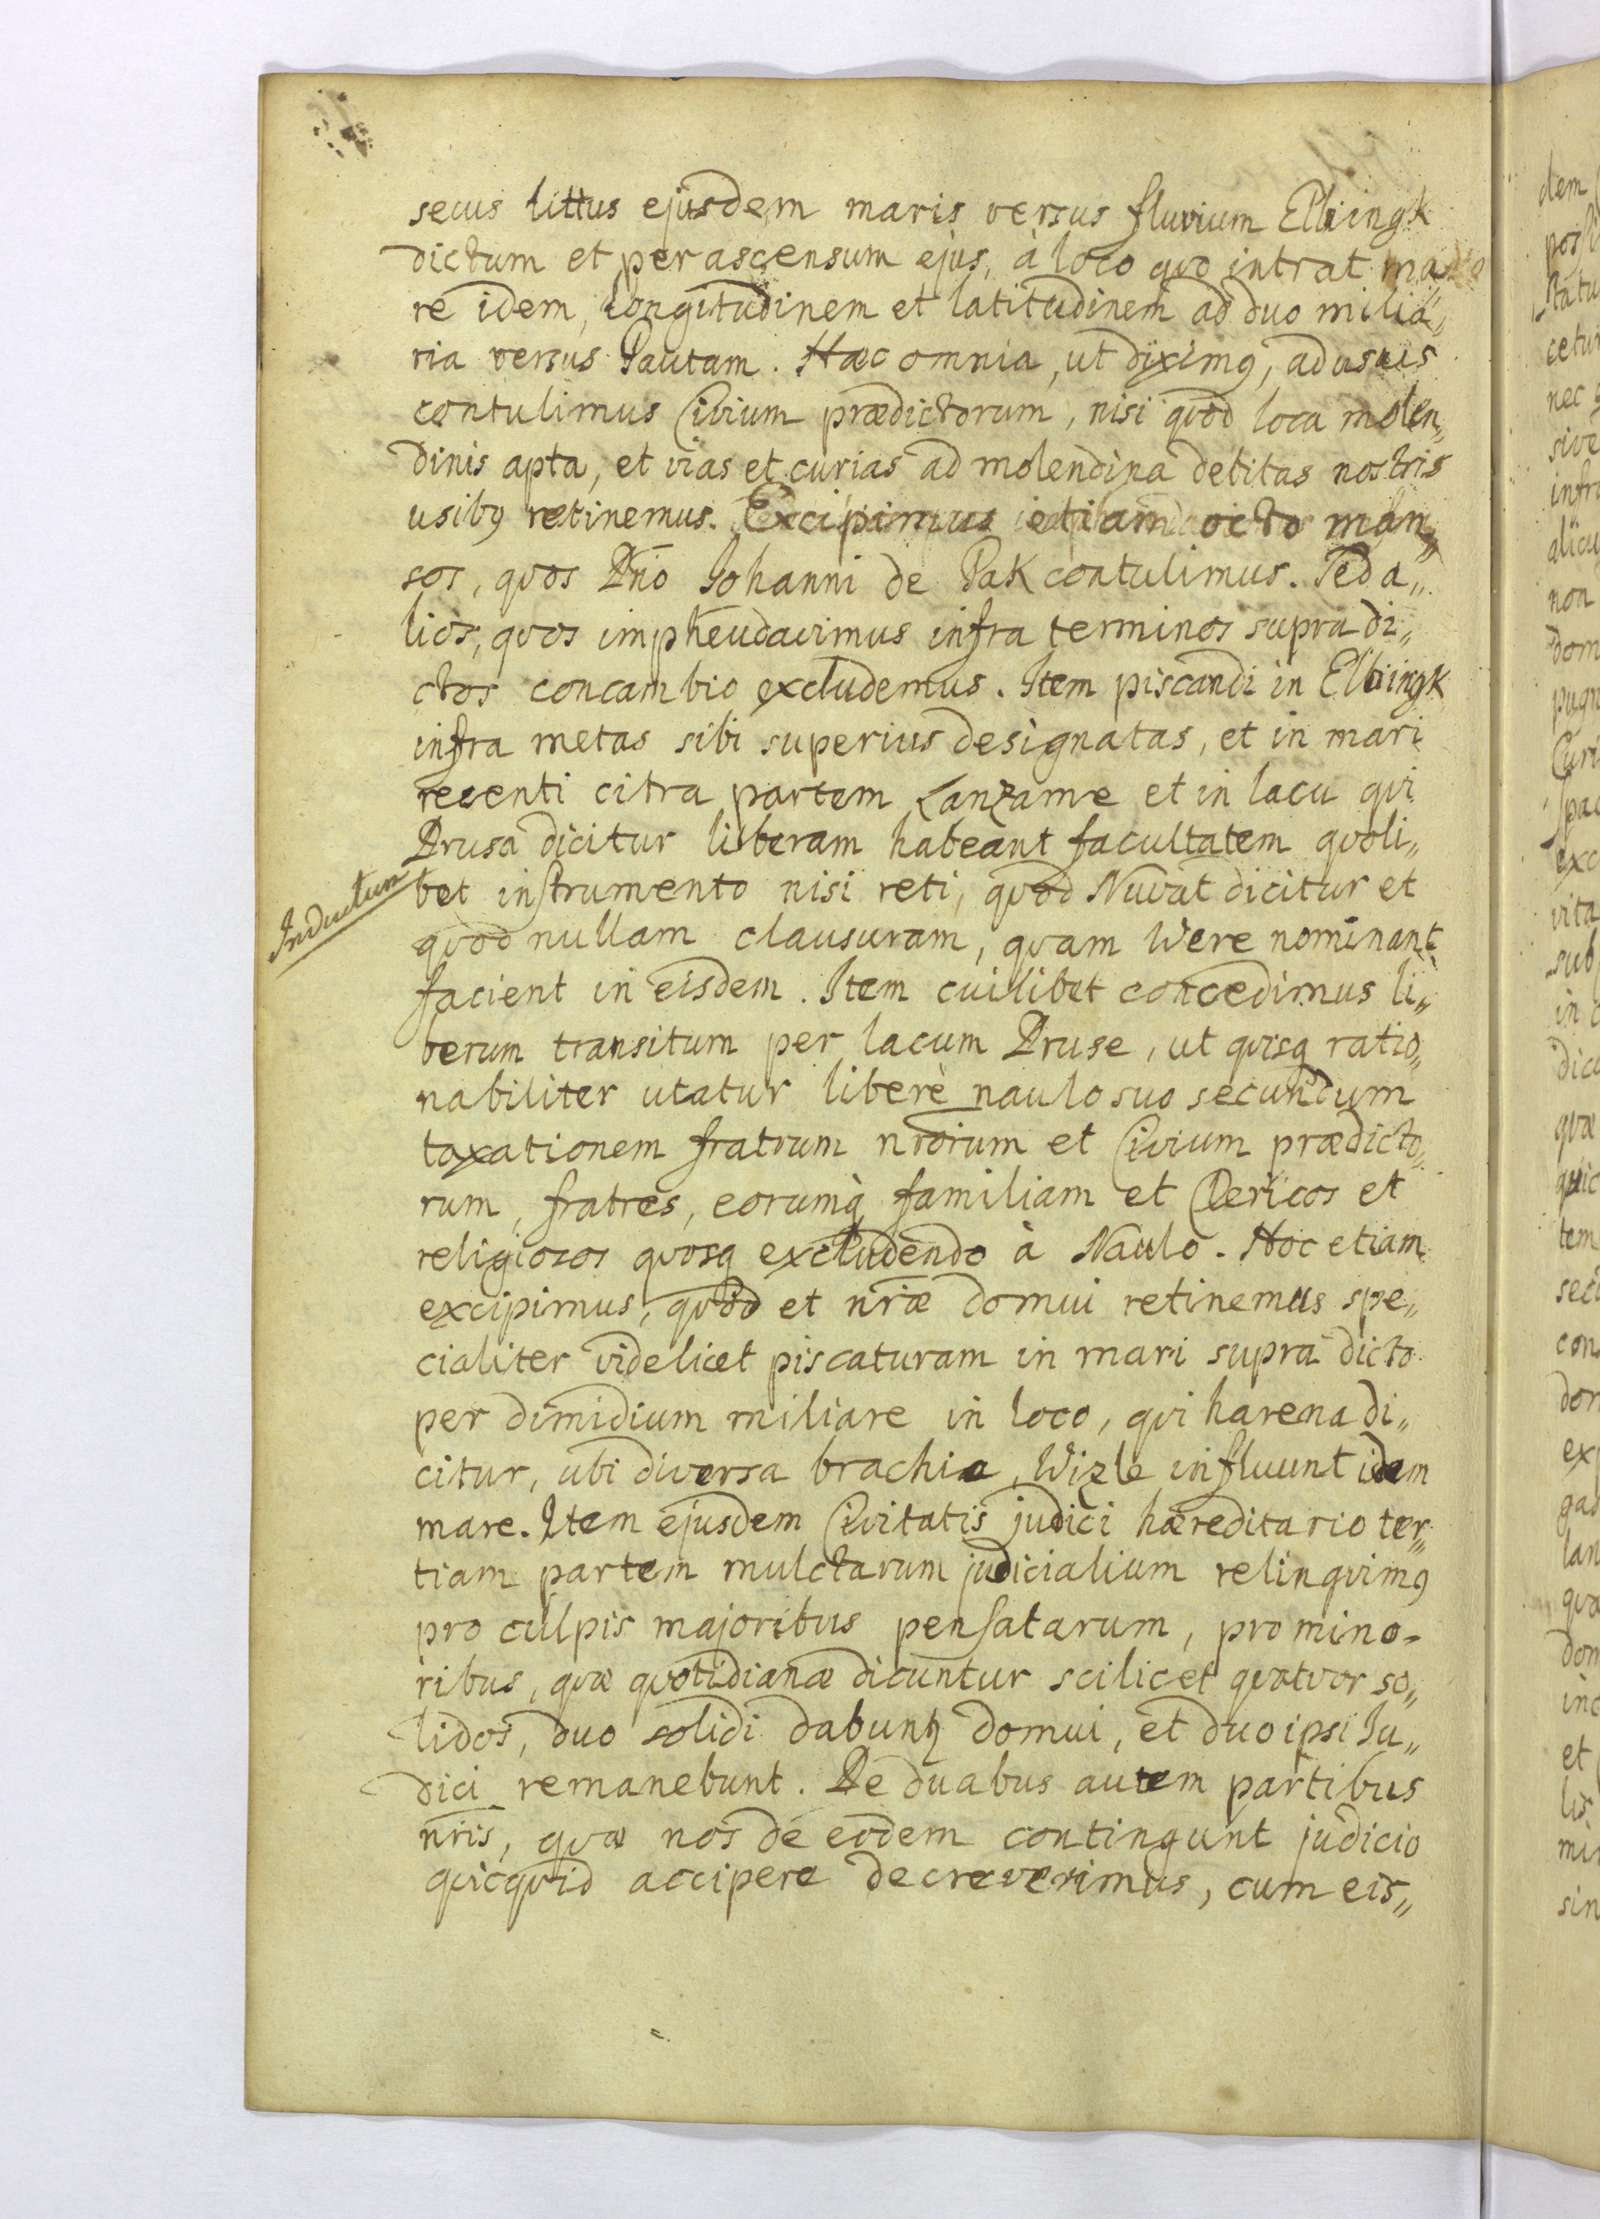 secus littus ejusdem maris versus fluvium Elbingk
dictum et per ascensum ejus, à loco quo intrat ma„
re idem, longitudinem et latitudinem ad duo milia„
ria versus Pautam. Hæc omnia, ut diximq, ad usus
contulimus Civium prædictorum, nisi quod loca molen„
dinis apta, et vias et curias ad molendina detitas nostris
usibq retinemus. Excipimus etiam octo man„
sos, quos Dn̄o Johanni de Pak contulimus. Ted a„
lios, quos impheudavimus infra terminos supra di„
ctos concambio excludemus. Item piscandi in Elbingk
infra metas sibi superius designatas, et in mari
recenti citra partem Lanzame et in lacu qui
Drusa dicitur liberam habeant facultatem quoli„
Inductum
bet instrumento nisi reti, quod Nuvat dicitur et
quod nullam clausuram, quam Were nominant
facient in eisdem. Item cuilibet concedimus li„
berum transitum per lacum Druse, ut quisq ratio„
nabiliter utatur liberè naulo suo secundum
taxationem fratrum nrorum et Civium prædicto„
rum, fratres, eorumq familiam et Clericos et
religiosos quosq excludendo à Naulo. Hoc etiam
excipimus, quod et nr̄æ domui retinemus spe„
cialiter videlicet piscaturam in mari supra dicto
per dimidium miliare in loco, qui harena di„
citur, ubi diversa brachia, Wizle influunt idem
mare. Item ejusdem Civitatis judici hæreditario ter„
tiam partem mulctarum judicialium relinquimq
pro culpis majoribus pensatarum, pro mino-
ribus, quæ quotidianæ dicuntur scilicet quatuor so„
lidos, duo solidi dabuntꝝ domui, et duo ipsi Ju„
dici remanebunt. De duabus autem partibus
nr̄is, quæ nos de eodem contingunt judicio
quicquid accipere decreverimus, cum eis„